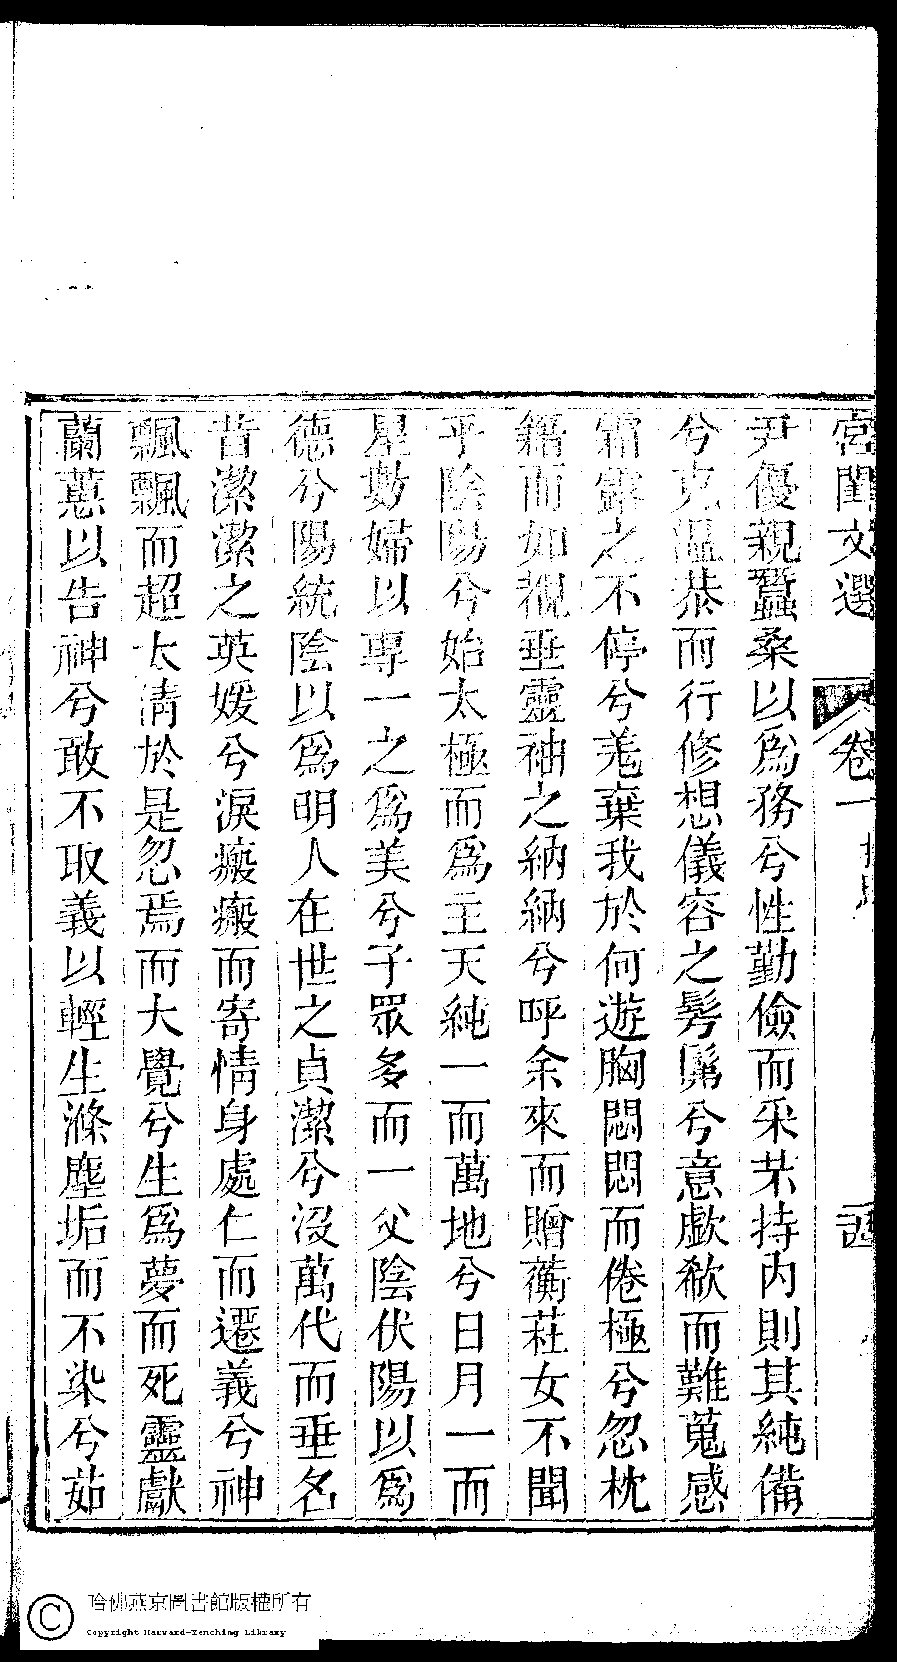 宮閨文選 卷一 
尹優親蠶桑以爲務兮性勤儉而采芣持內則其純備
兮克溫恭而行修想儀容之髣髴兮意歔欷而難蒐感
霜露之不停兮羌棄我於何遊胸悶悶而倦極兮忽枕
籍而如視垂靈袖之納納兮呼余來而贈蘅莊女不聞
乎陰陽兮始太極而爲主天純一而萬地兮日月一而
星數婦以專一之爲美兮子眾多而一父陰伏陽以爲
德兮陽統陰以爲明人在世之貞潔兮沒萬代而垂名
昔潔潔之英媛兮淚瘢瘢而寄情身處仁而遷義兮神
飄飄而超太清於是忽焉而大覺兮生爲夢而死靈獻
蘭蕙以告神兮敢不取義以輕生滌塵垢而不染兮茹
哈佛燕京圖書館版權所有
Copyright Harvard-Yenching Library